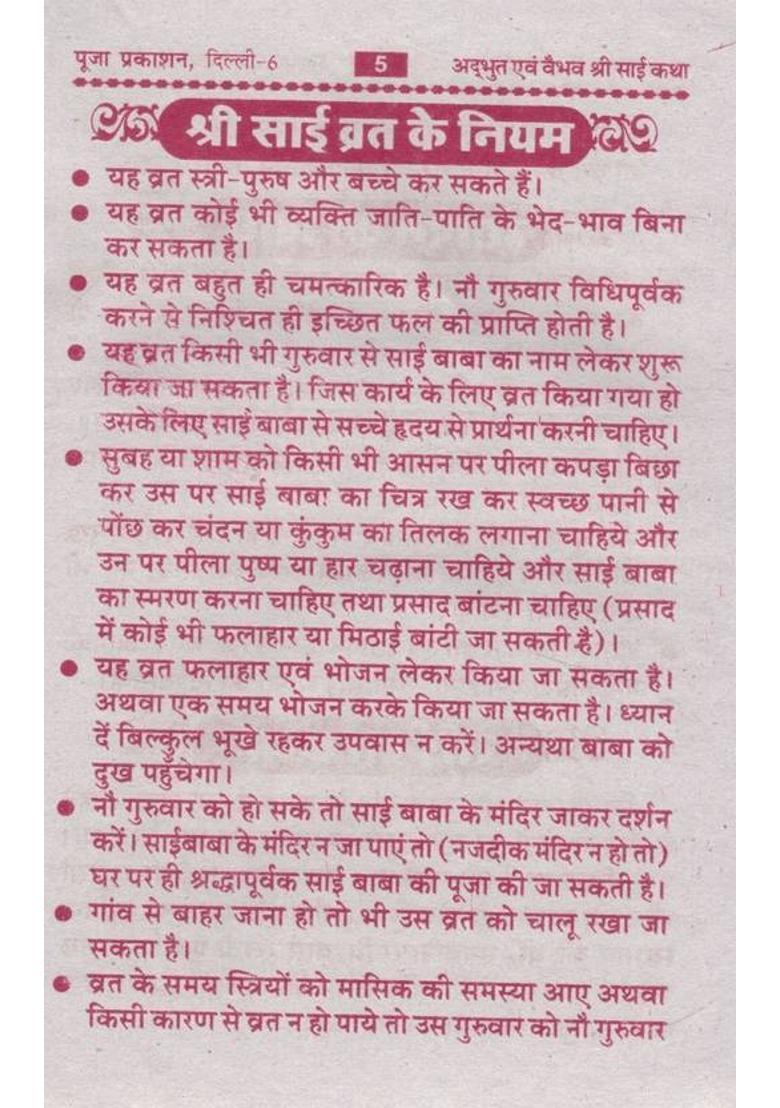 पूजा प्रकाशन, दिल्ली-6 5 अद्भुत एवं वैभव श्री साई कथा
श्री साई व्रत के नियम
● यह व्रत स्त्री-पुरुष और बच्चे कर सकते हैं।
● यह व्रत कोई भी व्यक्ति जाति-पाति के भेद-भाव बिना
कर सकता है।
● यह व्रत बहुत ही चमत्कारिक है। नौ गुरुवार विधिपूर्वक
करने से निश्चित ही इच्छित फल की प्राप्ति होती है।
● यह व्रत किसी भी गुरुवार से साई बाबा का नाम लेकर शुरू
किया जा सकता है। जिस कार्य के लिए व्रत किया गया हो
उसके लिए साई बाबा से सच्चे हृदय से प्रार्थना करनी चाहिए।
● सुबह या शाम को किसी भी आसन पर पीला कपड़ा बिछा
कर उस पर साई बाबा का चित्र रख कर स्वच्छ पानी से
पोंछ कर चंदन या कुंकुम का तिलक लगाना चाहिये और
उन पर पीला पुष्प या हार चढ़ाना चाहिये और साई बाबा
का स्मरण करना चाहिए तथा प्रसाद बांटना चाहिए (प्रसाद
में कोई भी फलाहार या मिठाई बांटी जा सकती है)।
● यह व्रत फलाहार एवं भोजन लेकर किया जा सकता है।
अथवा एक समय भोजन करके किया जा सकता है। ध्यान
दें बिल्कुल भूखे रहकर उपवास न करें। अन्यथा बाबा को
दुख पहुँचेगा।
● नौ गुरुवार को हो सके तो साई बाबा के मंदिर जाकर दर्शन
करें। साईबाबा के मंदिर न जा पाएं तो (नजदीक मंदिर न हो तो)
घर पर ही श्रद्धापूर्वक साई बाबा की पूजा की जा सकती है।
● गांव से बाहर जाना हो तो भी उस व्रत को चालू रखा जा
सकता है।
● व्रत के समय स्त्रियों को मासिक की समस्या आए अथवा
किसी कारण से व्रत न हो पाये तो उस गुरुवार को नौ गुरुवार